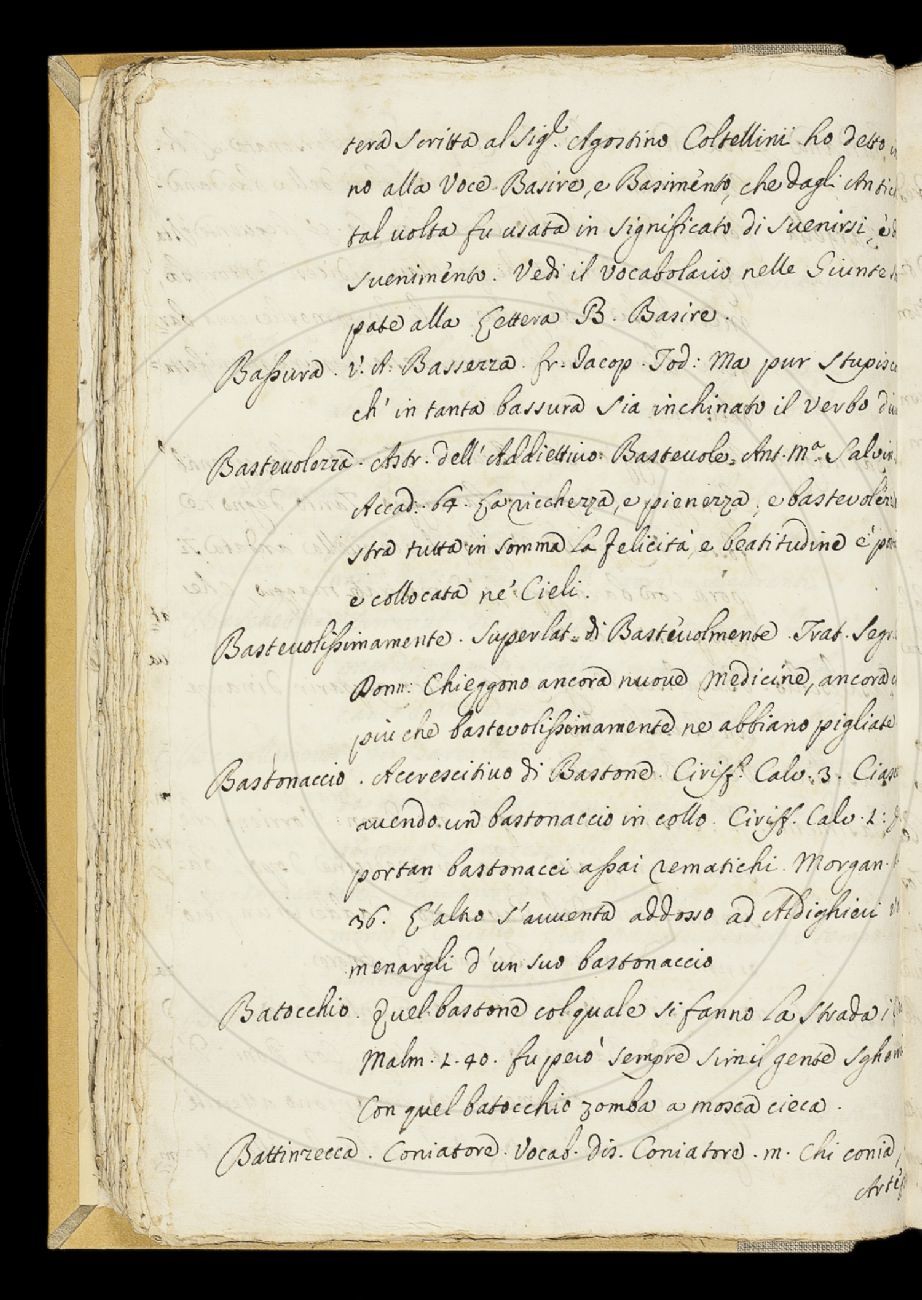 tera Scritta al Sig.r Agostino Coltellini ho detto
no alla Voce Basire, e Basimento, che dagli Antic
tal uolta fu usata in significato di Suenirsi, e d
suenimento. Vedi il Vocabolario nelle Giunte
pate alla Lettera B. Basire.
Bassura. V. A. Bassezza. fr. Iacop. Tod: Ma pur stupisce
ch' in tanta bassura sia inchinato il Verbo di
Basteuolezza. Astr. dell' Addiettiuo Basteuole. Ant. M.a Salvin
Accad. 64. La ricchezza, e pienezza, e basteuolez
stra tutta in somma la felicità, e beatitudine è
è collocata ne' Cieli.
Basteuolissimamente. Superlat. di Basteuolmente. Trat. Segr.
Donn: Chieggono ancora nuoue Medicine, ancora
più che bastevolissimamente ne abbiano pigliate
Bastonaccio. Accrescitiuo di Bastone. Ciriff. Calv. 3. Cias
auendo un bastonaccio in collo. Ciriff. Calv. 2:
portan bastonacci assai rematichi. Morgan.
36. E l'altro s'auuenta addosso ad Aldighieri
menargli d'un suo bastonaccio
Batocchio. Quel bastone col quale si fanno la strada i
Malm. 2. 40. fu però sempre simil gente sgho
Con quel batocchio zomba a mosca cieca.
Battinzecca. Coniatore. Vocab. Dis. Coniatore. m. Chi conia,
Artef